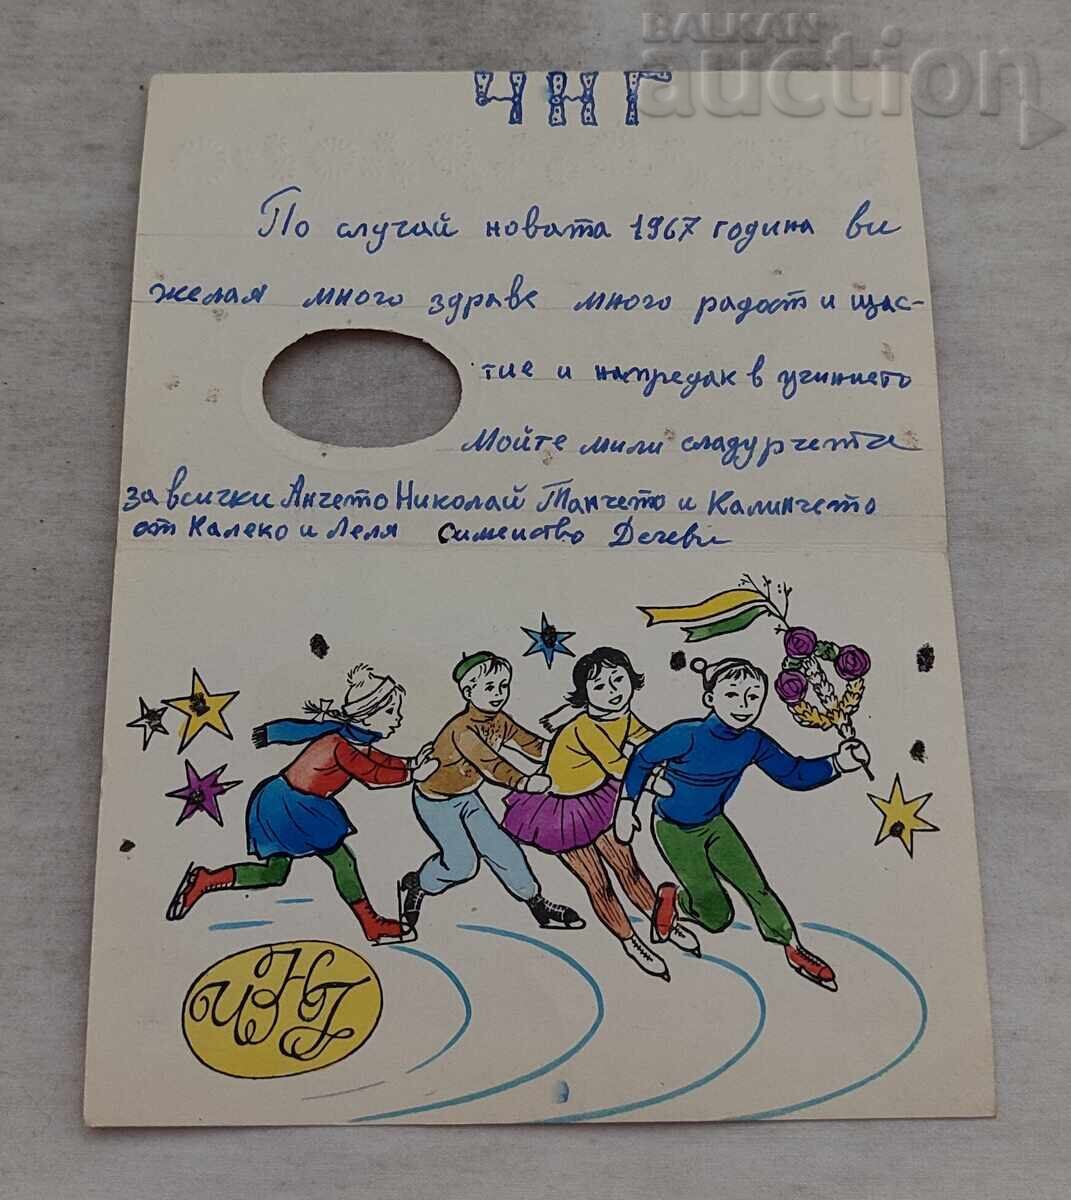 BALKAN
auction
ЧНГ
По случай новата 1967 година ви
желая много здраве много радост и щас-
тие и напредак в учинието
Мойте мили сладурчета
за всички Анчето Николай Танчето и Калинчето
от Калеко и Леля Симейство Дечеви
ЧНГ